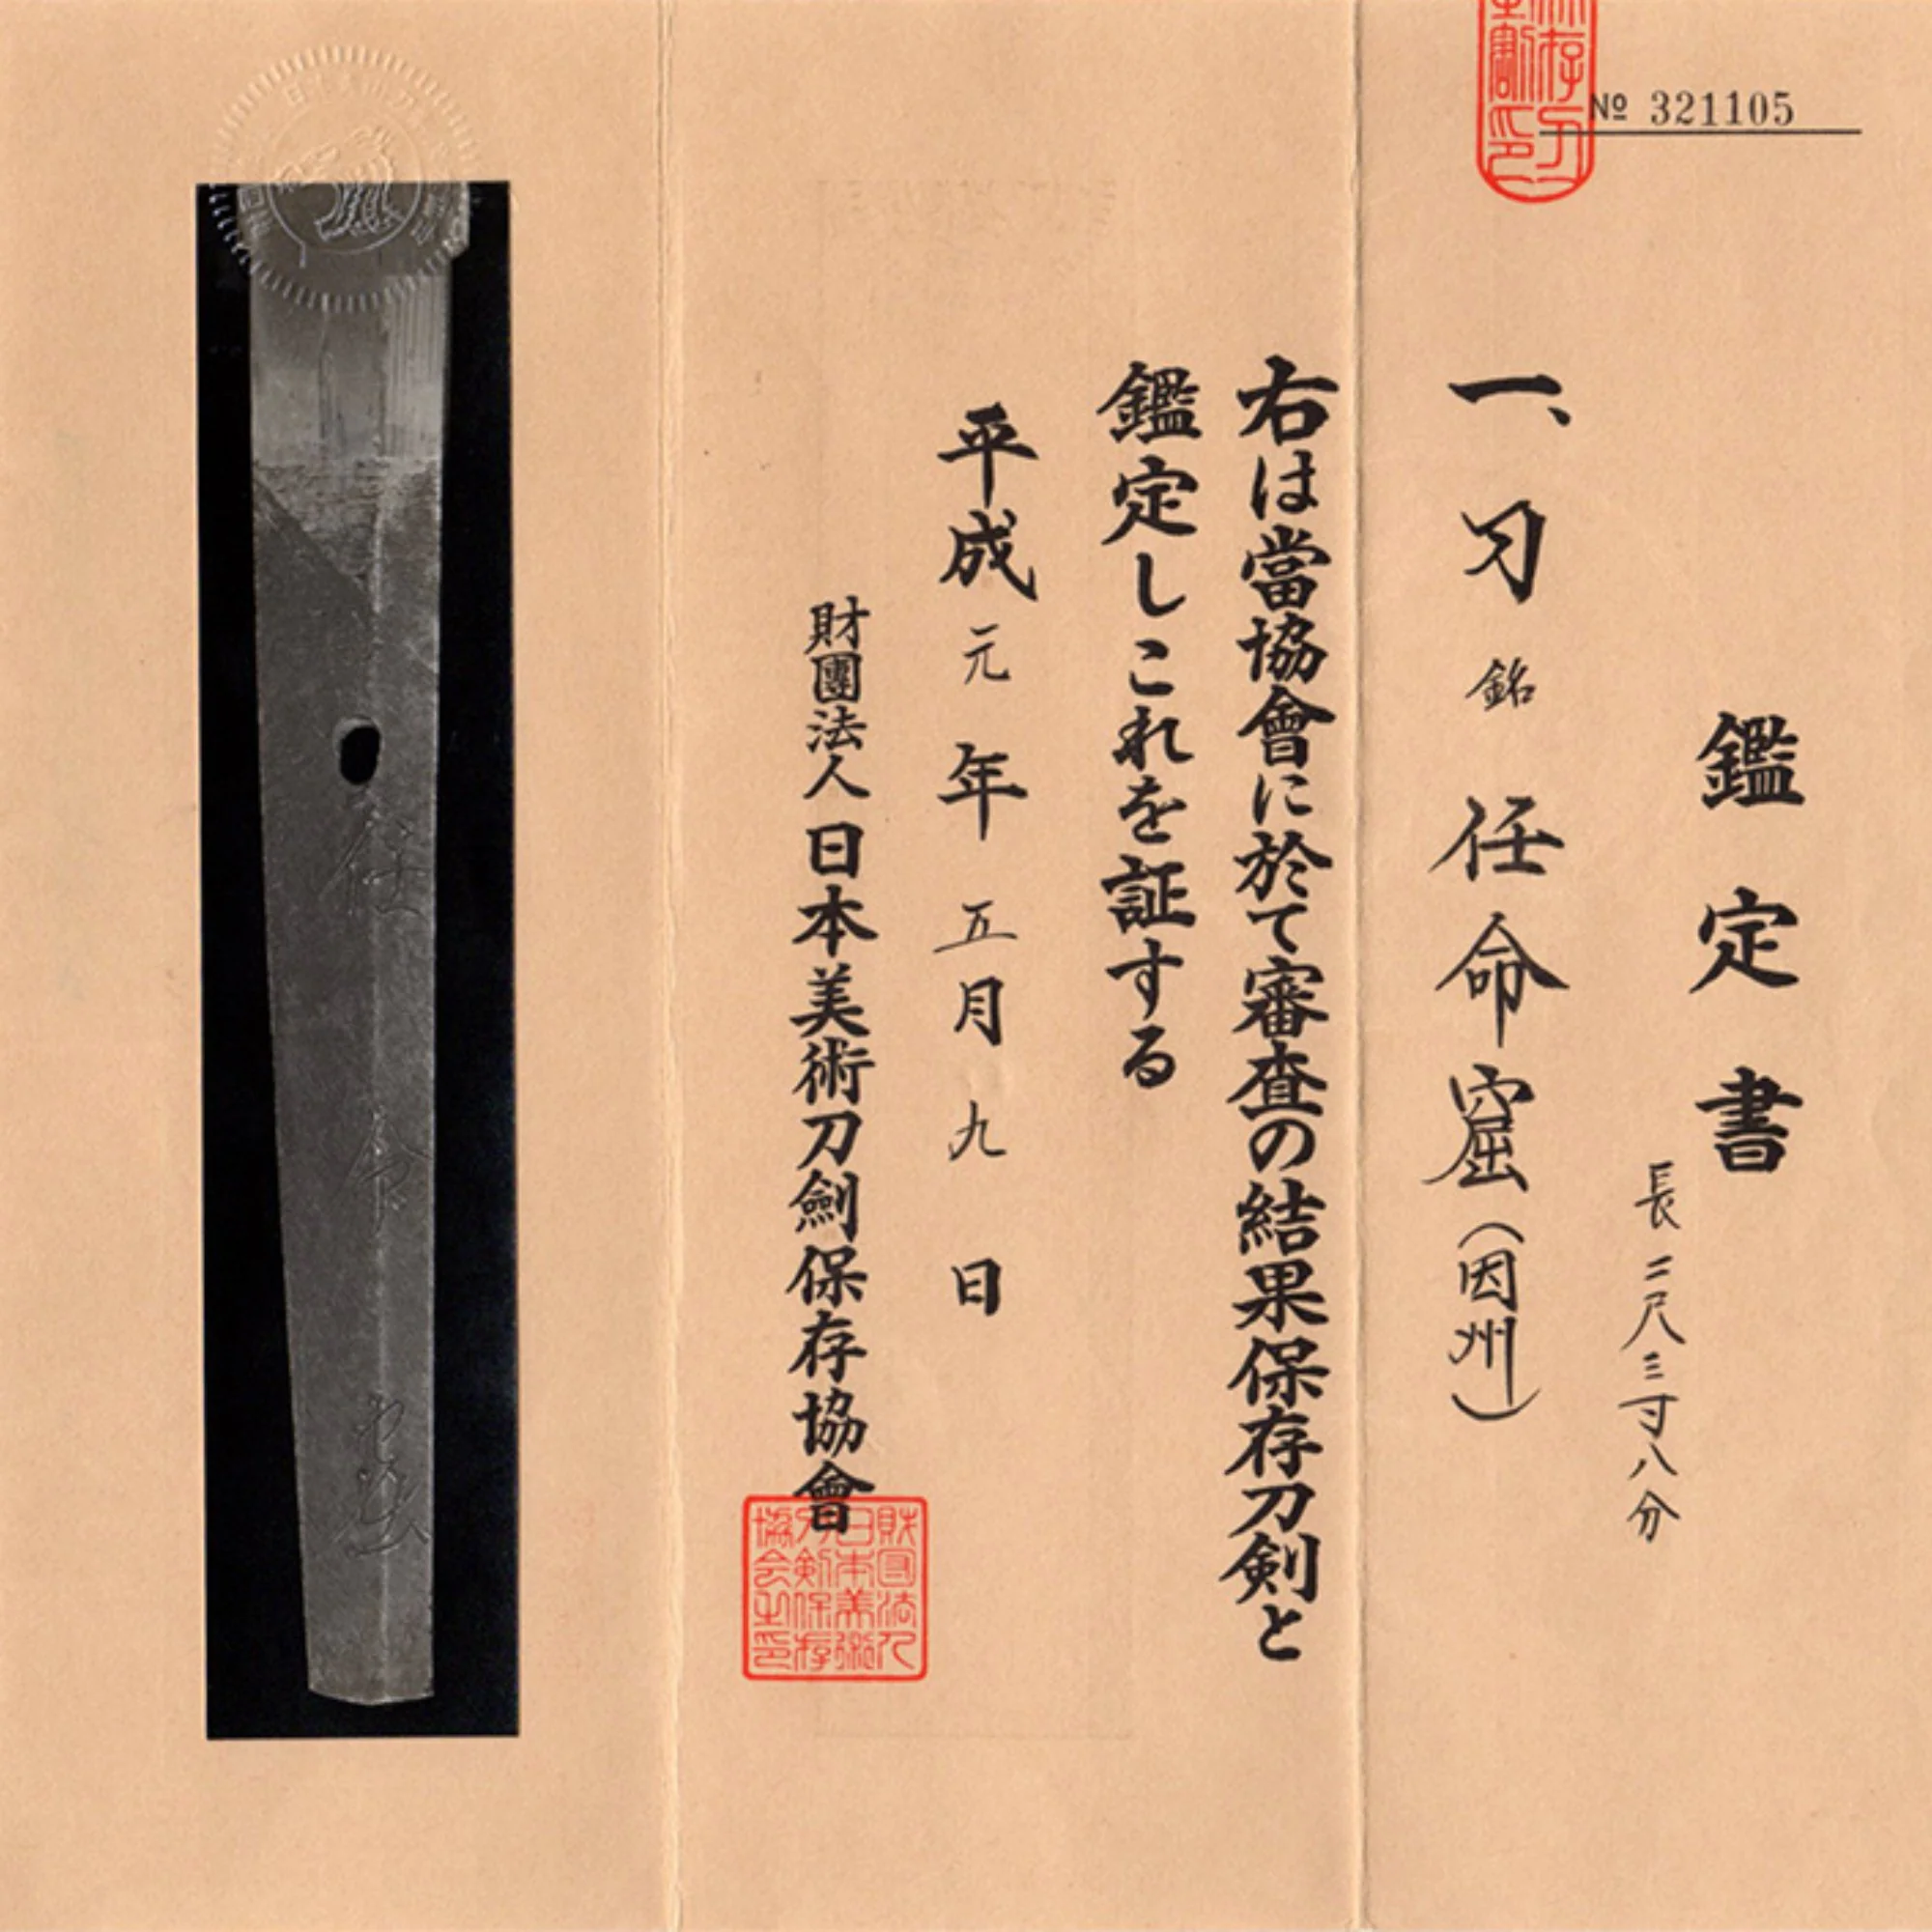 № 321105
鑑定書
長二尺三寸八分
一、刀 銘 任命窟(因州)
右は當協會に於て審査の結果保存刀剣と
鑑定しこれを証する
平成元年五月九日
財團法人日本美術刀劍保存協會
財団法人日本美術刀剣保存協会之印
任命窟